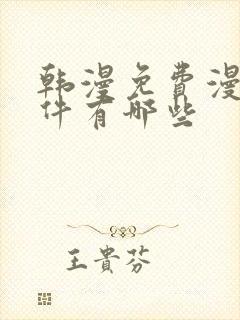 韩漫免费漫
件有哪些
王貴芬